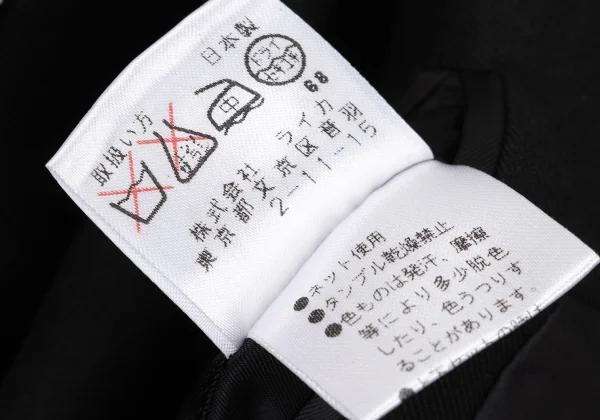 取扱い方
日本製
中
ドライ
セキユ系
68
株式会社 ライカ
東京都文京区音羽
2-11-15
●ネット使用
●タンブル乾燥禁止
●色ものは発汗、摩擦
等により多少脱色
したり、色うつりす
ることがあります。